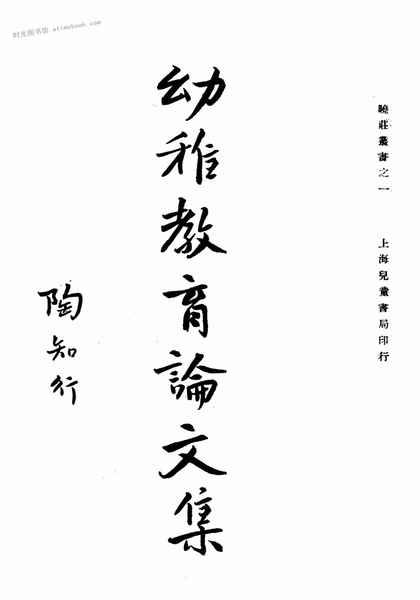 时光图书馆 atimebook.com
曉莊叢書之一 上海兒童書局印行
幼稚教育論文集
陶知行